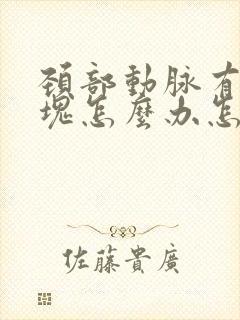 頚部動脉有
塊怎麼办怎
佐藤貴廣